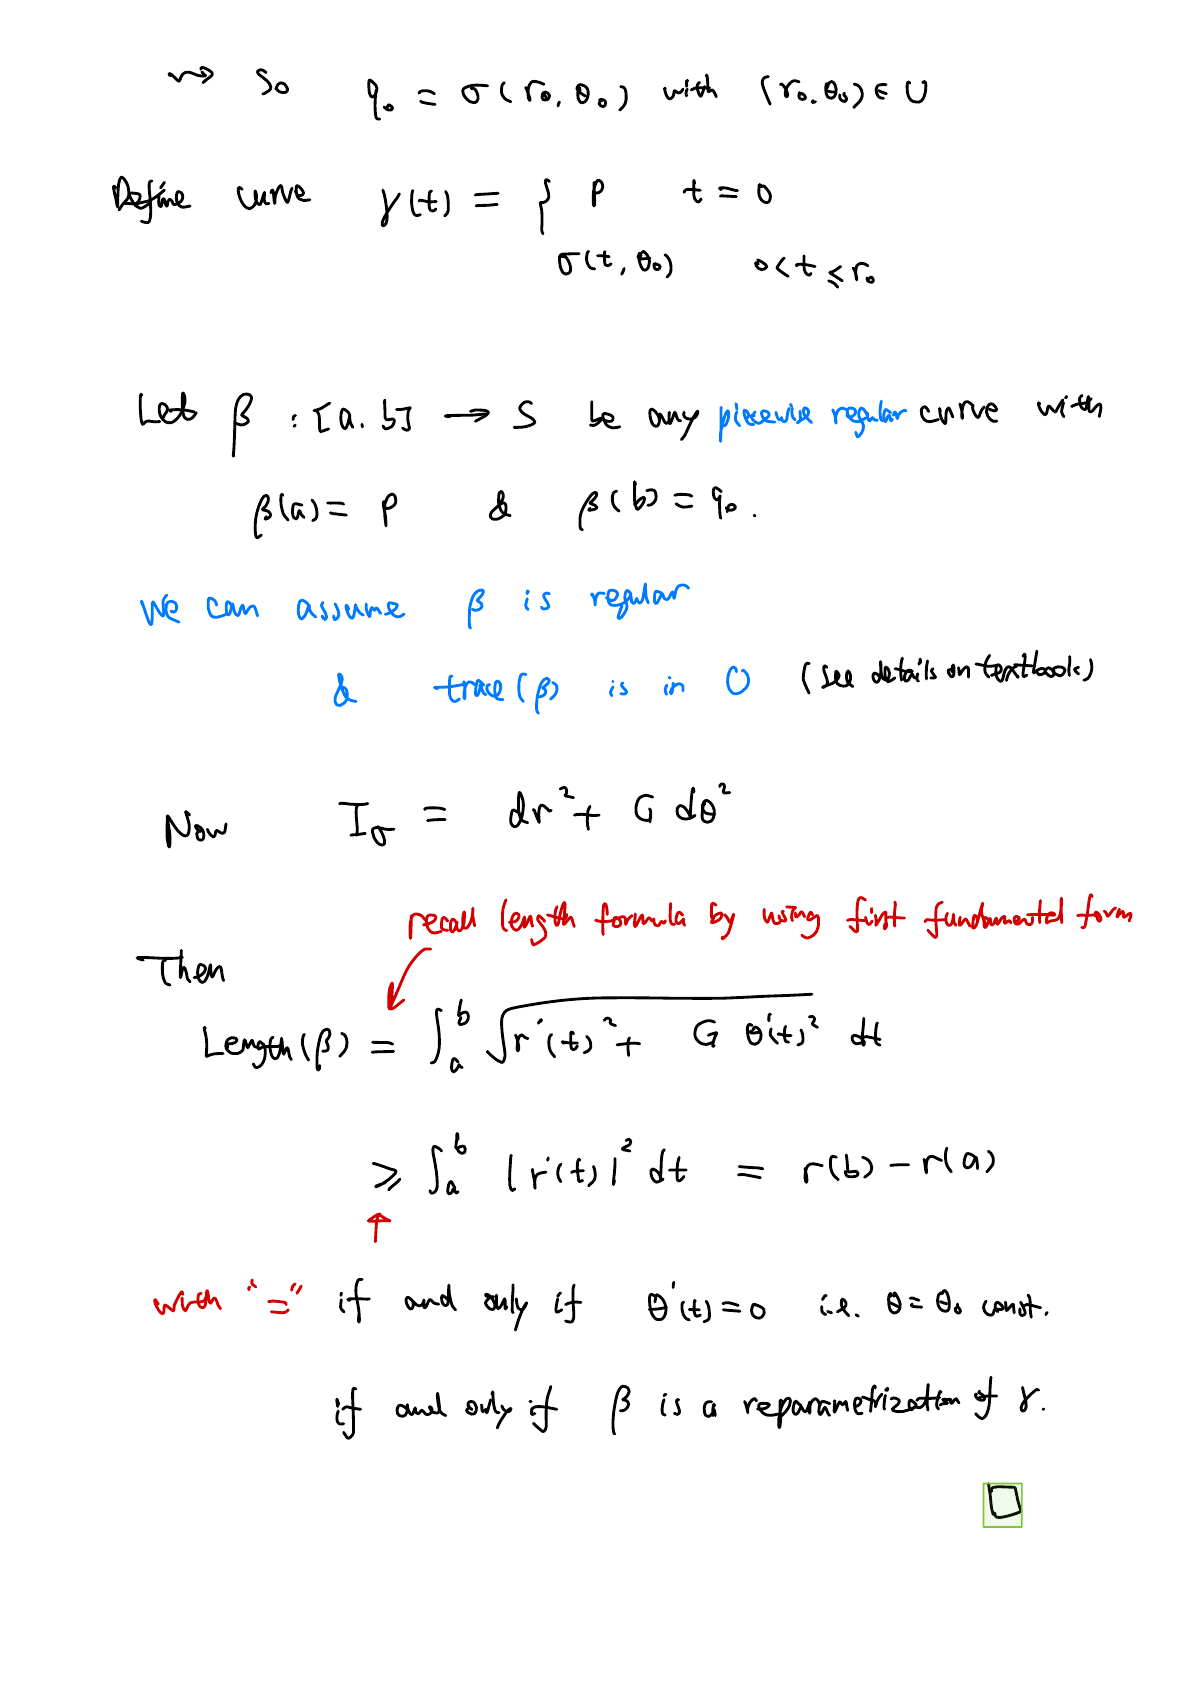 ⇝ So q₀ = σ(r₀, θ₀) with (r₀.θ₀) ∈ U
Define curve γ(t) = { p t = 0
σ(t, θ₀) 0 < t ⩽ r₀
Let β : [a. b] → S be any piecewise regular curve with
β(a) = p & β(b) = q₀.
We can assume β is regular
& trace(β) is in U (see details on textbook)
Now I_σ = dr² + G dθ²
recall length formula by using first fundamental form
Then
Length(β) = ∫ₐᵇ √(r'(t)² + G θ'(t)²) dt
⩾ ∫ₐᵇ |r'(t)|² dt = r(b) − r(a)
↑
with "=" if and only if θ'(t) = 0 i.e. θ = θ₀ const.
if and only if β is a reparametrization of γ.
□